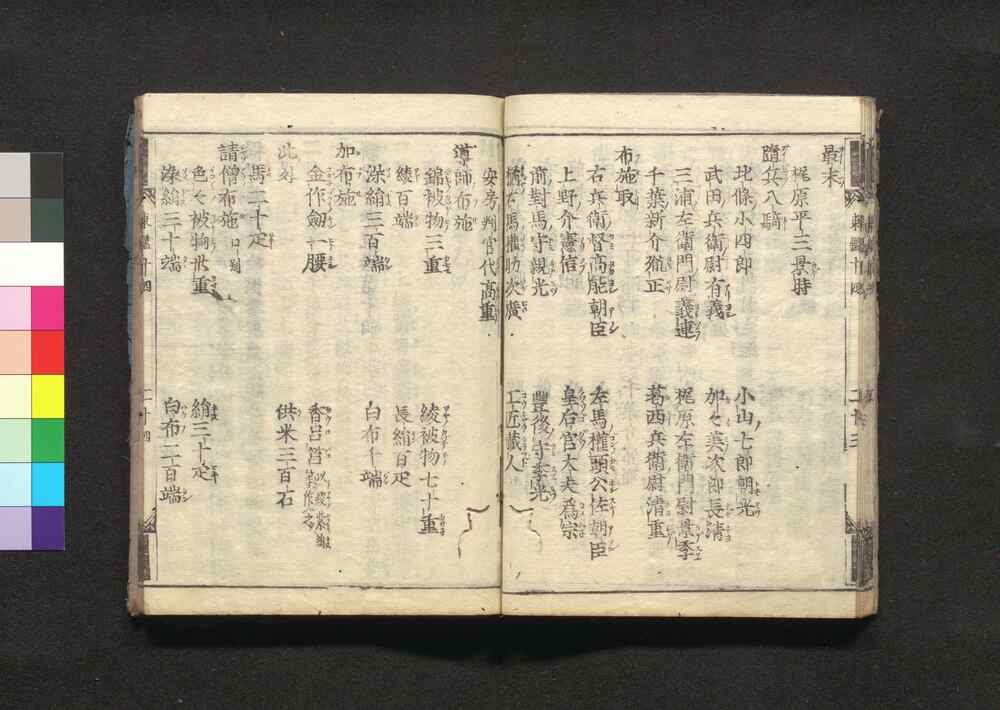 最末
梶原平三景時
隨兵八騎
北條小四郎 小山七郎朝光
武田兵衛尉有義 加々美次郎長清
三浦左衛門尉義連 梶原左衛門尉景季
千葉新介胤正 葛西兵衛尉清重
布施取
右兵衛督高能朝臣 左馬權頭公佐朝臣
上野介憲信 皇后宮大夫爲宗
前對馬守親光 豊後守季光
橘右馬權助次廣 工匠藏人
安房判官代高重
導師布施
錦被物三重 綾被物七十重
綾百端 長絹百疋
染絹三百端 白布千端
加布施
金作劔一腰 香呂筥
此外 供米三百石
馬二十疋
請僧布施 口別
色々被物卅重 絹三十疋
染絹三十端 白布二百端
東鑑十四
二十四